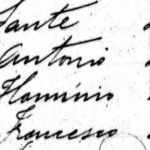 Sante
Antonio
Flaminio
Francesco